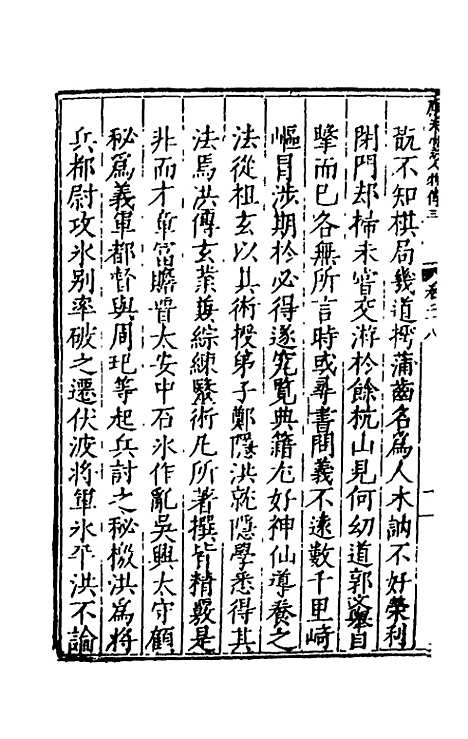 翫不知棋局幾道摴蒲齒名爲人木訥不好榮利
閉門却掃未嘗交游於餘杭山見何幼道郭文舉目
擊而已各無所言時或尋書問義不遠數千里崎
嶇冒涉期於必得遂究覽典籍尤好神仙導養之
法從祖玄以其術授弟子鄭隱洪就隱學悉得其
法馬洪傳玄業兼綜練醫術凡所著撰皆精覈是
非而才章富贍晉太安中石氷作亂吳興太守顧
秘爲義軍都督與周玘等起兵討之秘檄洪爲將
兵都尉攻氷别率破之遷伏波將軍氷平洪不論